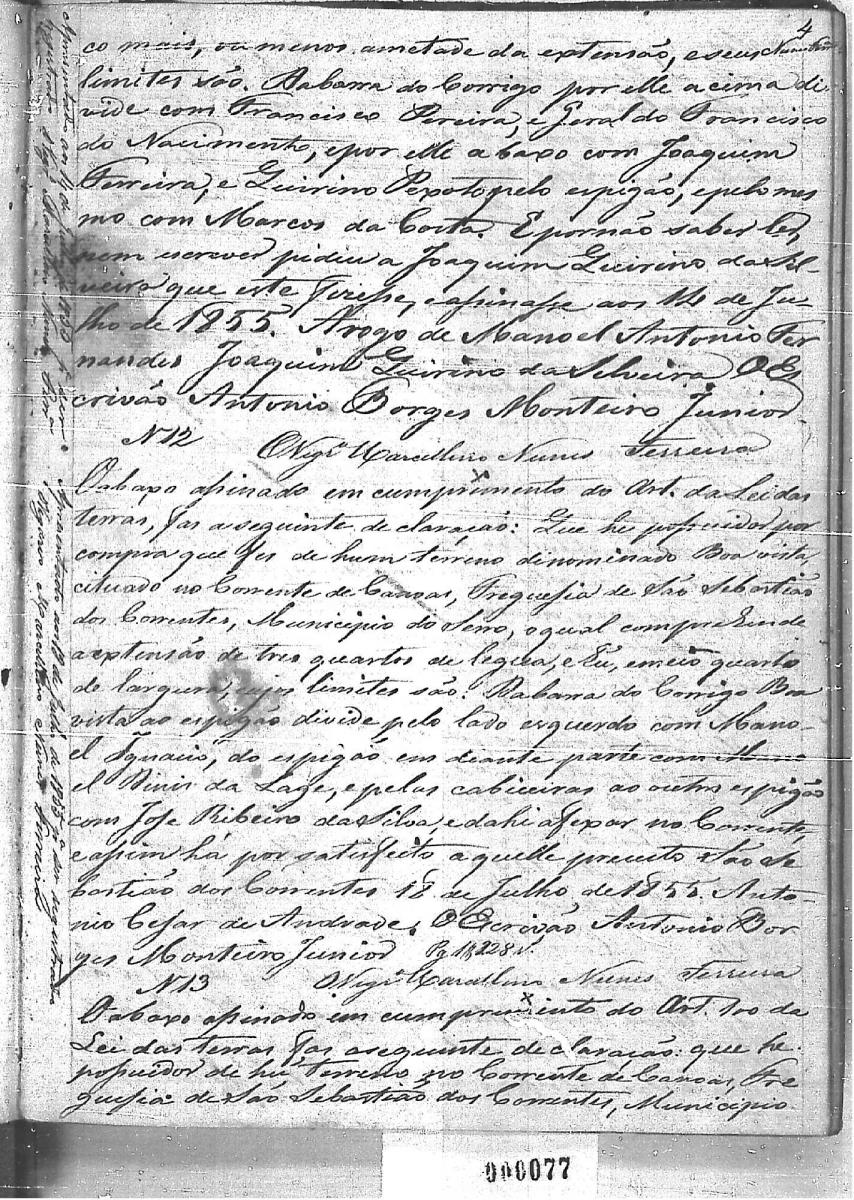 4
Nunes Ferr.
co mais, ou menos ametade da extensão, e seus
limites são. Dabarra do Corrigo por elle acima di-
vide com Francisco Pereira, e Geraldo Francisco
do Nacimento, epor elle abaxo com Joaquim
Ferreira, e Guirino Pexoto pelo espigão, epelo mes
mo com Marcos da Costa. Epornão saber ler,
nem escrever pidiu a Joaquim Guirino da Sil-
veira que este fizesse, e asinasse aos 14 de Ju-
lho de 1855. Arogo de Manoel Antonio Fer
nandes Joaquim Guirino da Selveira O Es
crivão Antonio Borges Monteiro Junior
N12 O Vigr.º Marcellino Nunes Ferreira
O abaxo asinado em cumprimento do Art. da Lei das
terras, fas a seguinte de claração: Que he possuidor por
compra que fes de hum terreno dinominado Boa vista,
cituado no Corrente de Canoas, Freguesia de São Sebastião
dos Correntes, Municipio do Serro, oqual compreende
a extensão de tres quartos de legua, e meio quarto
de largura, cujos limites são. Dabarra do Corrigo Boa
vista ao espigão divide pelo lado esquerdo com Mano-
el Ignacio, do espigão em deante parte com Mano
el Dinis da Lage, epelas cabiceiras ao outro espigão
com Jose Ribeiro da Silva, e dahi afexar no Corrente,
e assim há por satisfeito aquelle preceito São Se
bastião dos Correntes 18 de Julho, de 1855. Anto-
nio Cesar de Andrade. O Escrivão Antonio Bor
ges Monteiro Junior Pg 1$228 r.
N13 O Vigr.º Marcellino Nunes Ferreira
O abaxo asinado em cumprimento do Art. 100 da
Lei das terras fas aseguinte de claração: que he
possuidor de hú terreno no Corrente de Canoas, Fre
guesia de São Sebastião dos Correntes, Municipio
Apresentado aos 18 de Julho de 1855
Vigario Marcellino Nunes Ferreira
000077